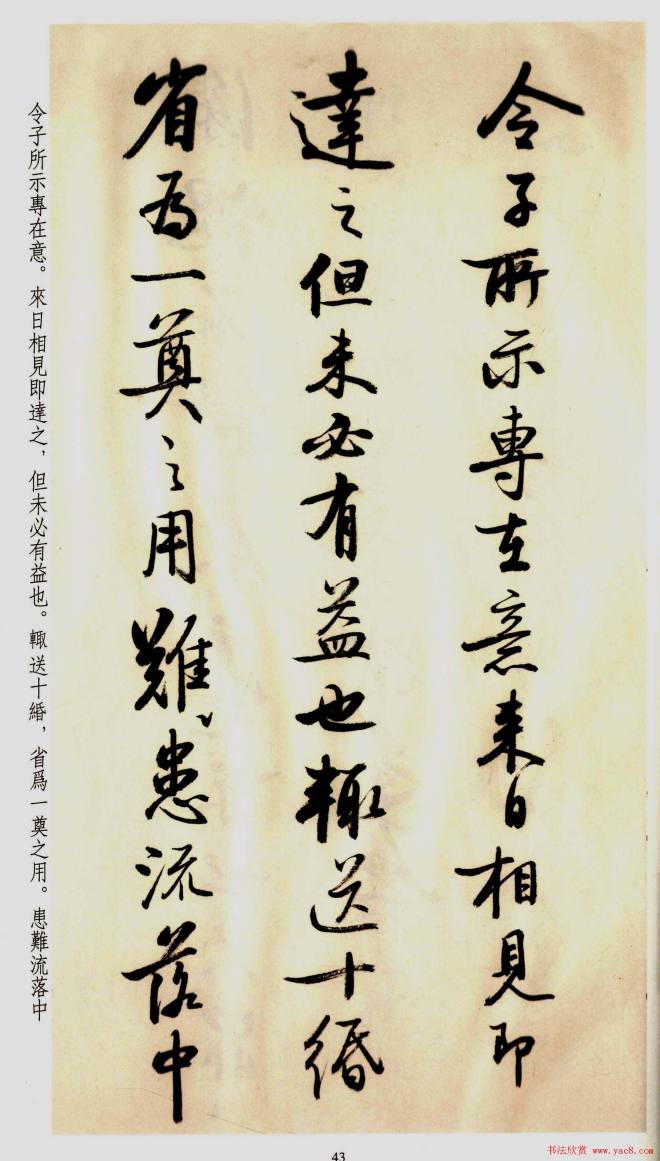 令子所示專在意来日相見即
達之但未必有益也輙送十緡
省為一奠之用難患流落中
令子所示專在意。來日相見即達之，但未必有益也。輙送十緡，省爲一奠之用。患難流落中
43
书法欣赏 www.yac8.com